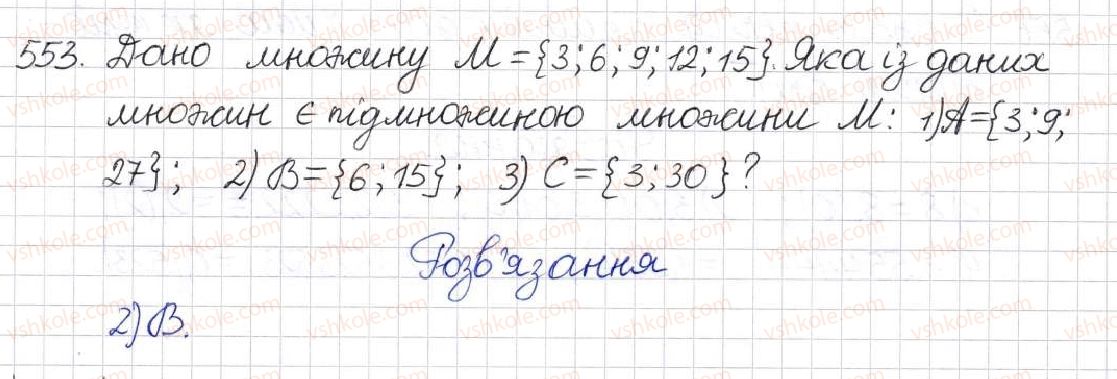 553. Дано множину M = {3; 6; 9; 12; 15}. Яка із даних
множин є підмножиною множини M: 1) A = {3; 9;
27}; 2) B = {6; 15}; 3) C = {3; 30}?
Розв'язання
2) B.